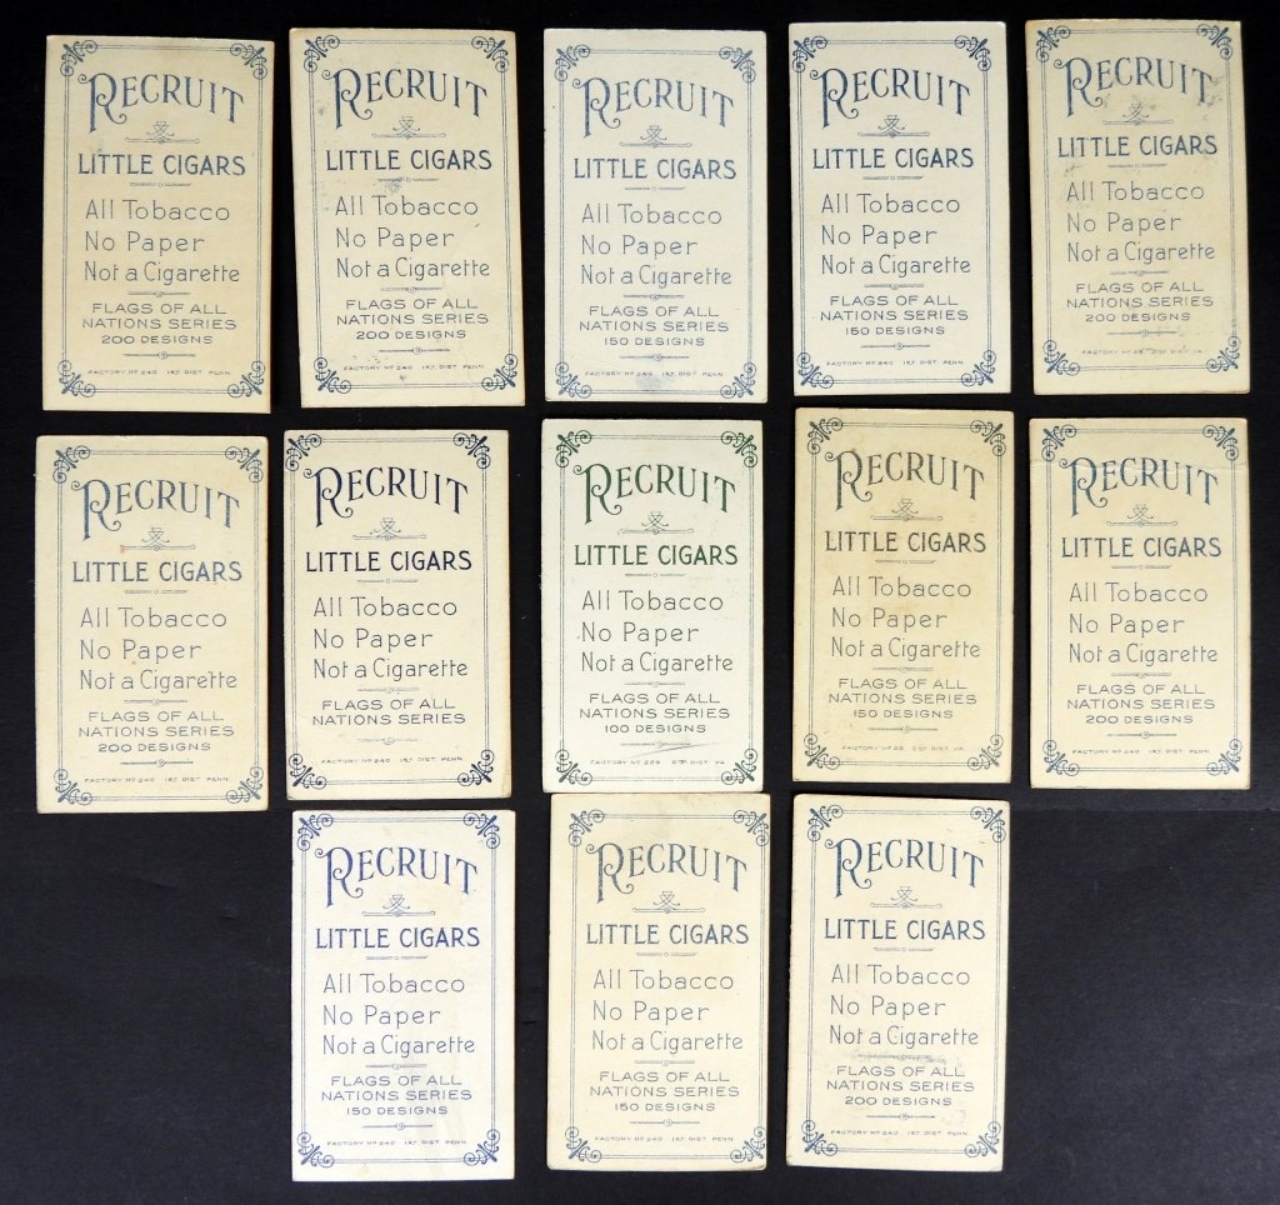 RECRUIT
LITTLE CIGARS
All Tobacco
No Paper
Not a Cigarette
FLAGS OF ALL
NATIONS SERIES
200 DESIGNS
FACTORY Nº 240 1ST DIST. PENN.
RECRUIT
LITTLE CIGARS
All Tobacco
No Paper
Not a Cigarette
FLAGS OF ALL
NATIONS SERIES
200 DESIGNS
FACTORY Nº 240 1ST DIST. PENN.
RECRUIT
LITTLE CIGARS
All Tobacco
No Paper
Not a Cigarette
FLAGS OF ALL
NATIONS SERIES
150 DESIGNS
FACTORY Nº 240 1ST DIST. PENN.
RECRUIT
LITTLE CIGARS
All Tobacco
No Paper
Not a Cigarette
FLAGS OF ALL
NATIONS SERIES
150 DESIGNS
FACTORY Nº 240 1ST DIST. PENN.
RECRUIT
LITTLE CIGARS
All Tobacco
No Paper
Not a Cigarette
FLAGS OF ALL
NATIONS SERIES
200 DESIGNS
FACTORY Nº 25 2ND DIST. VA.
RECRUIT
LITTLE CIGARS
All Tobacco
No Paper
Not a Cigarette
FLAGS OF ALL
NATIONS SERIES
200 DESIGNS
FACTORY Nº 240 1ST DIST. PENN.
RECRUIT
LITTLE CIGARS
All Tobacco
No Paper
Not a Cigarette
FLAGS OF ALL
NATIONS SERIES
FACTORY Nº 240 1ST DIST. PENN.
RECRUIT
LITTLE CIGARS
All Tobacco
No Paper
Not a Cigarette
FLAGS OF ALL
NATIONS SERIES
100 DESIGNS
FACTORY Nº DIST. VA.
RECRUIT
LITTLE CIGARS
All Tobacco
No Paper
Not a Cigarette
FLAGS OF ALL
NATIONS SERIES
150 DESIGNS
FACTORY Nº 25 2ND DIST. VA.
RECRUIT
LITTLE CIGARS
All Tobacco
No Paper
Not a Cigarette
FLAGS OF ALL
NATIONS SERIES
200 DESIGNS
FACTORY Nº 240 1ST DIST. PENN.
RECRUIT
LITTLE CIGARS
All Tobacco
No Paper
Not a Cigarette
FLAGS OF ALL
NATIONS SERIES
150 DESIGNS
FACTORY Nº 240 1ST DIST. PENN.
RECRUIT
LITTLE CIGARS
All Tobacco
No Paper
Not a Cigarette
FLAGS OF ALL
NATIONS SERIES
150 DESIGNS
FACTORY Nº 240 1ST DIST. PENN.
RECRUIT
LITTLE CIGARS
All Tobacco
No Paper
Not a Cigarette
FLAGS OF ALL
NATIONS SERIES
200 DESIGNS
FACTORY Nº 240 1ST DIST. PENN.